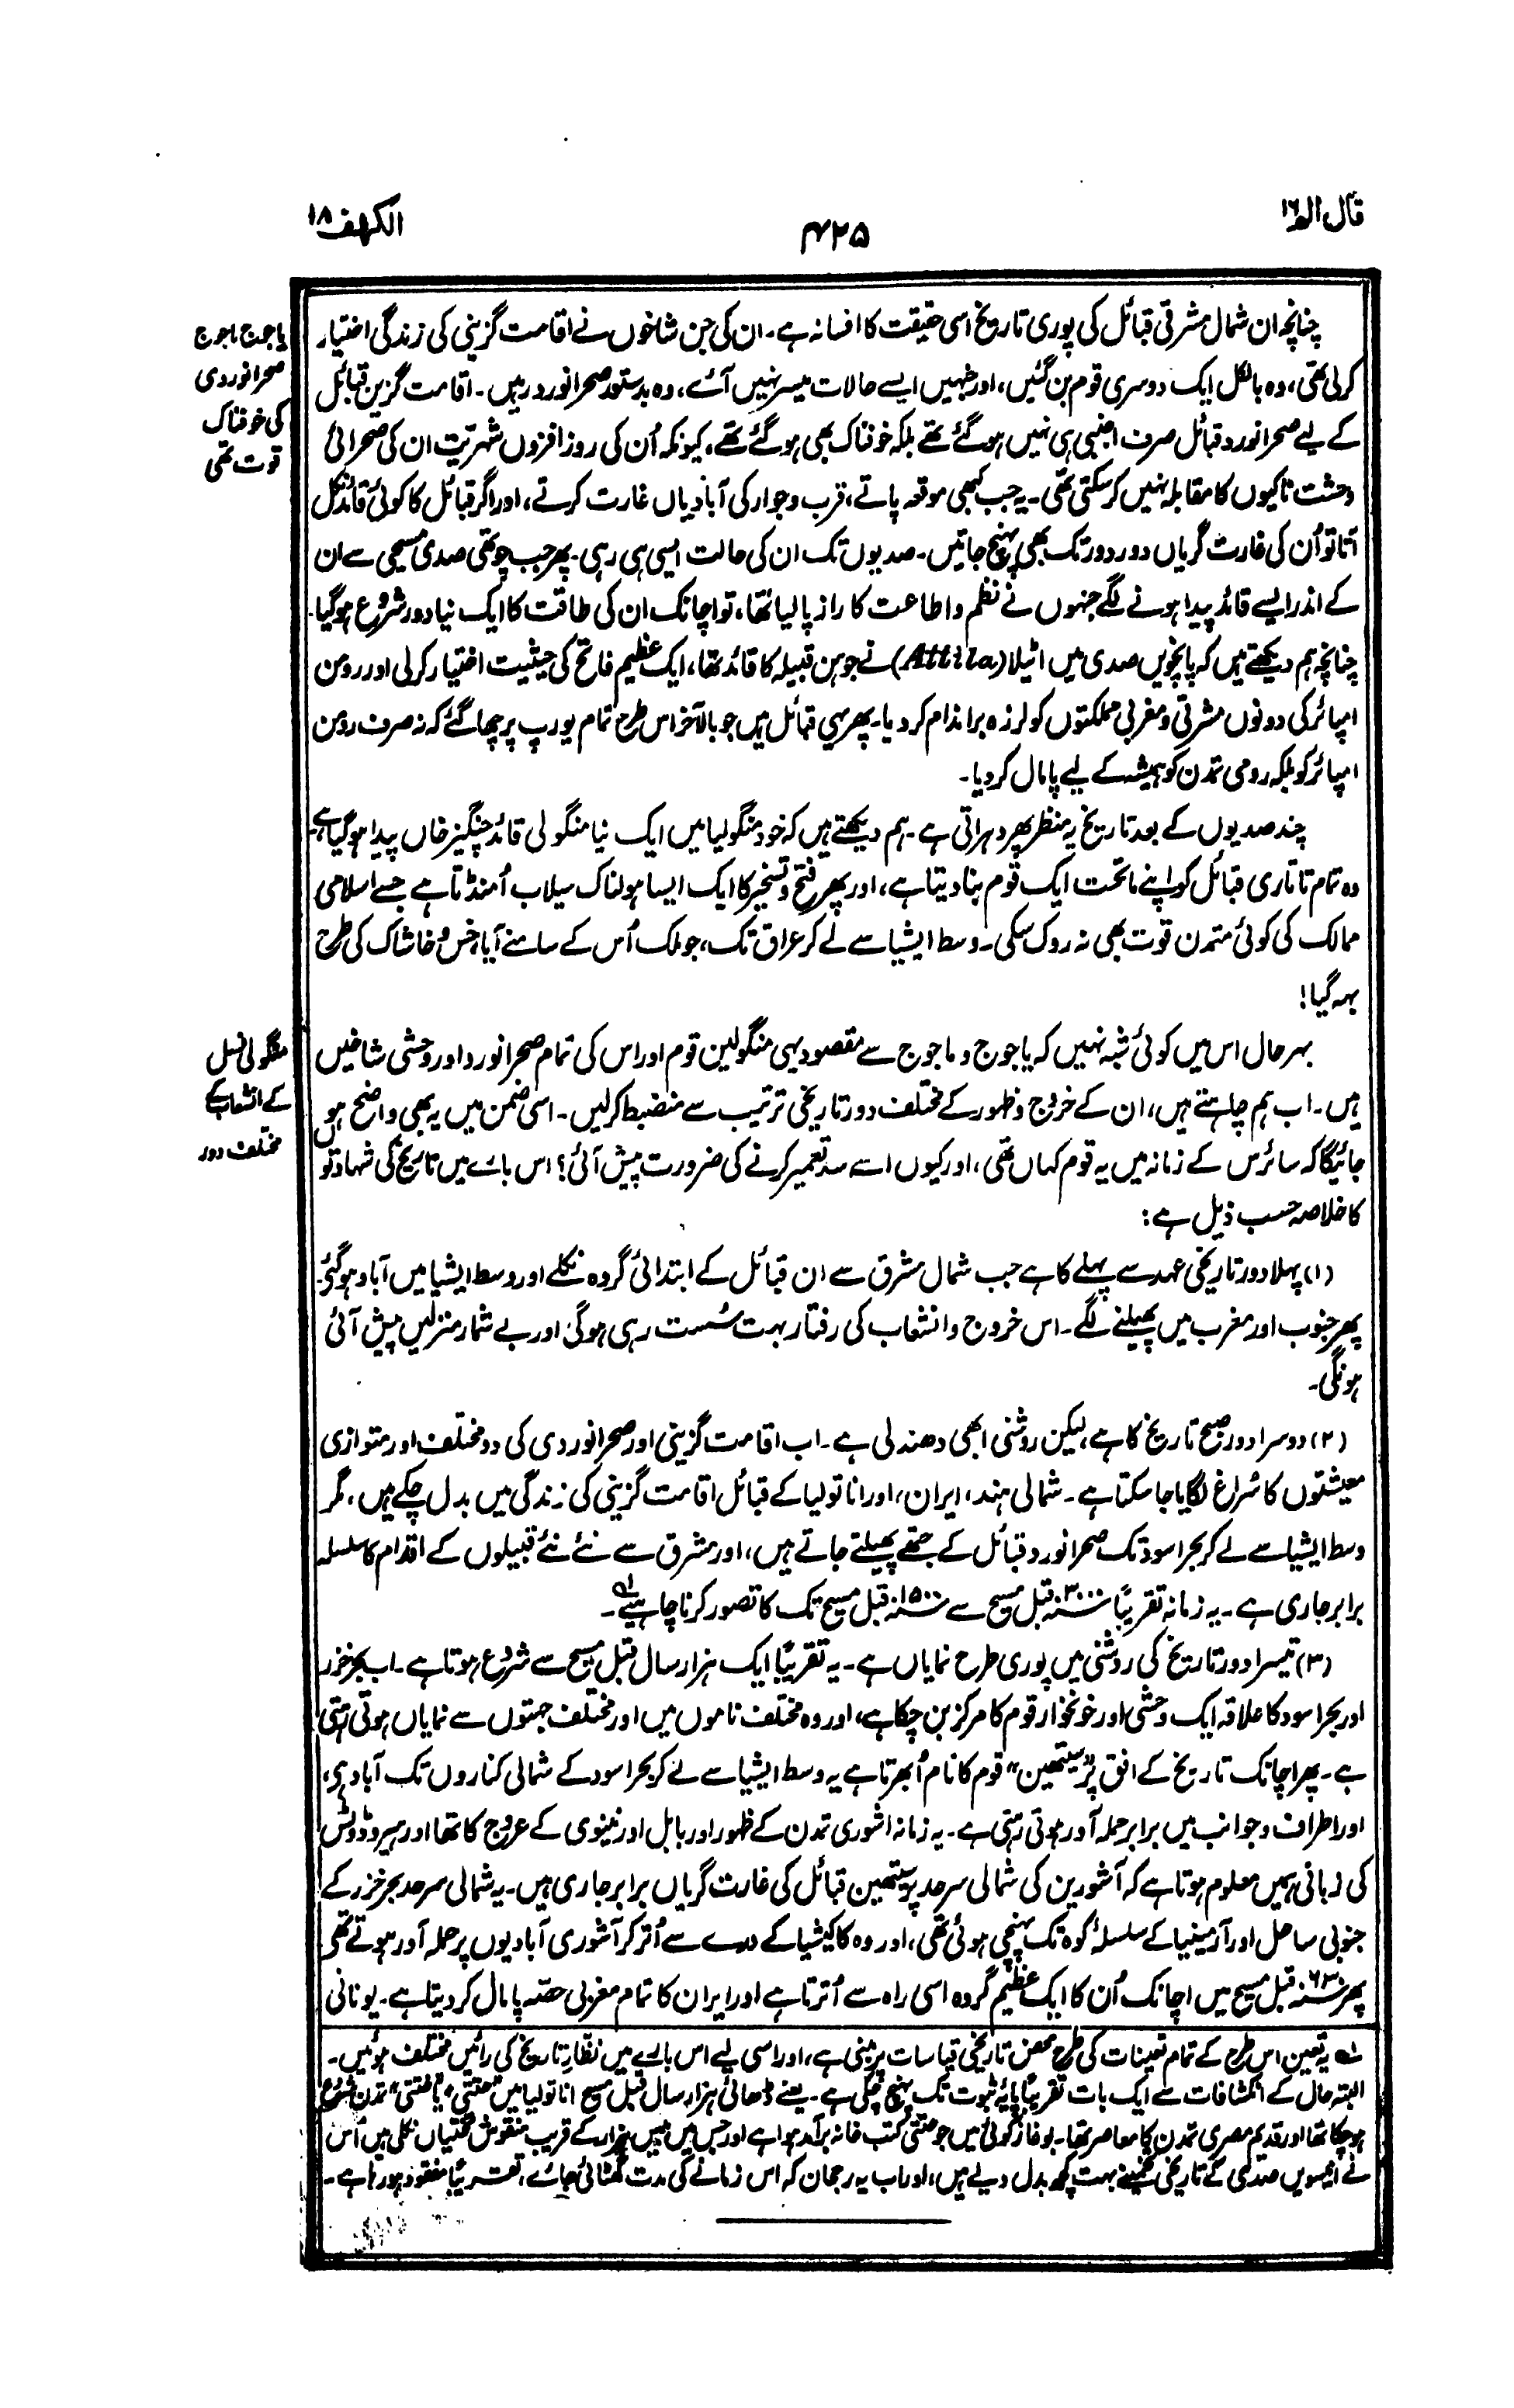 قال الم ۱۶
۴۲۵
الکہف ۱۸
چنانچہ ان شمال مشرقی قبائل کی پوری تاریخ اسی حقیقت کا افسانہ ہے۔ ان کی جن شاخوں نے اقامت گزینی کی زندگی اختیار
کرلی تھی، وہ بالکل ایک دوسری قوم بن گئیں، اور جنہیں ایسے حالات میسر نہیں آئے، وہ بدستور صحرا نورد رہیں۔ اقامت گزین قبائل
کے لیے صحرا نورد قبائل صرف اجنبی ہی نہیں ہوگئے تھے بلکہ خوفناک بھی ہوگئے تھے، کیونکہ اُن کی روز افزوں شہریت ان کی صحرائی
وحشت ناکیوں کا مقابلہ نہیں کرسکتی تھی۔ یہ جب کبھی موقعہ پاتے، قرب و جوار کی آبادیاں غارت کرتے، اور اگر قبائل کا کوئی قائد نکل
آتا تو اُن کی غارت گریاں دور دور تک بھی پہنچ جاتیں۔ صدیوں تک ان کی حالت ایسی ہی رہی۔ پھر جب چوتھی صدی مسیحی سے ان
کے اندر ایسے قائد پیدا ہونے لگے جنہوں نے نظم و اطاعت کا راز پالیا تھا، تو اچانک ان کی طاقت کا ایک نیا دور شروع ہوگیا۔
چنانچہ ہم دیکھتے ہیں کہ پانچویں صدی میں اٹیلا (Attila) نے جو ہن قبیلہ کا قائد تھا، ایک عظیم فاتح کی حیثیت اختیار کرلی اور رومن
امپائر کی دونوں مشرقی و مغربی مملکتوں کو لرزہ براندام کردیا۔ پھر یہی قبائل ہیں جو بالآخر اس طرح تمام یورپ پر چھا گئے کہ نہ صرف رومن
امپائر کو بلکہ رومی تمدن کو ہمیشہ کے لیے پامال کردیا۔
چند صدیوں کے بعد تاریخ یہ منظر پھر دہراتی ہے۔ ہم دیکھتے ہیں کہ خود منگولیا میں ایک نیا منگولی قائد چنگیز خاں پیدا ہوگیا ہے
وہ تمام تاتاری قبائل کو اپنے ماتحت ایک قوم بنا دیتا ہے، اور پھر فتح و تسخیر کا ایک ایسا ہولناک سیلاب اُمنڈتا ہے جسے اسلامی
ممالک کی کوئی متمدن قوت بھی نہ روک سکی۔ وسط ایشیا سے لے کر عراق تک، جو ملک اُس کے سامنے آیا، خس و خاشاک کی طرح
بہہ گیا!
بہرحال اس میں کوئی شبہ نہیں کہ یاجوج و ماجوج سے مقصود یہی منگولین قوم اور اس کی تمام صحرا نورد اور وحشی شاخیں
ہیں۔ اب ہم چاہتے ہیں، ان کے خروج و ظہور کے مختلف دور تاریخی ترتیب سے منضبط کرلیں۔ اسی ضمن میں یہ بھی واضح ہو
جائیگا کہ سائرس کے زمانہ میں یہ قوم کہاں تھی، اور کیوں اسے سد تعمیر کرنے کی ضرورت پیش آئی؟ اس بارے میں تاریخ کی شہادتوں
کا خلاصہ حسب ذیل ہے:
(۱) پہلا دور تاریخی عہد سے پہلے کا ہے جب شمال مشرق سے ان قبائل کے ابتدائی گروہ نکلے اور وسط ایشیا میں آباد ہوگئے
پھر جنوب اور مغرب میں پھیلنے لگے۔ اس خروج و انشعاب کی رفتار بہت سُست رہی ہوگی اور بے شمار منزلیں پیش آئی
ہونگی۔
(۲) دوسرا دور صبح تاریخ کا ہے، لیکن روشنی ابھی دھندلی ہے۔ اب اقامت گزینی اور صحرا نوردی کی دو مختلف اور متوازی
معیشتوں کا سُراغ لگایا جاسکتا ہے۔ شمالی ہند، ایران، اور اناتولیا کے قبائل اقامت گزینی کی زندگی میں بدل چکے ہیں، مگر
وسط ایشیا سے لے کر بحر اسود تک صحرا نورد قبائل کے جتھے پھیلتے جاتے ہیں، اور مشرق سے نئے نئے قبیلوں کے اقدام کا سلسلہ
برابر جاری ہے۔ یہ زمانہ تقریباً ۳۰۰۰ سنہ قبل مسیح سے ۱۵۰۰ سنہ قبل مسیح تک کا تصور کرنا چاہیے لہ۔
(۳) تیسرا دور تاریخ کی روشنی میں پوری طرح نمایاں ہے۔ یہ تقریباً ایک ہزار سال قبل مسیح سے شروع ہوتا ہے۔ اب بحر خزر
اور بحر اسود کا علاقہ ایک وحشی اور خونخوار قوم کا مرکز بن چکا ہے، اور وہ مختلف ناموں میں اور مختلف جہتوں سے نمایاں ہوتی رہتی
ہے۔ پھر اچانک تاریخ کے افق پر "سیتھین" قوم کا نام اُبھرتا ہے یہ وسط ایشیا سے لے کر بحر اسود کے شمالی کناروں تک آباد ہے،
اور اطراف و جوانب میں برابر حملہ آور ہوتی رہتی ہے۔ یہ زمانہ اشوری تمدن کے ظہور اور بابل اور نینوی کے عروج کا تھا اور ہیروڈوٹس
کی زبانی ہمیں معلوم ہوتا ہے کہ آشورین کی شمالی سرحد پر سیتھین قبائل کی غارت گریاں برابر جاری ہیں۔ یہ شمالی سرحد بحر خزر کے
جنوبی ساحل اور آرمینیا کے سلسلۂ کوہ تک پہنچی ہوئی تھی، اور وہ کاکیشیا کے درے سے اُتر کر آشوری آبادیوں پر حملہ آور ہوتے تھے
پھر ۶۳۰ سنہ قبل مسیح میں اچانک اُن کا ایک عظیم گروہ اسی راہ سے اُترتا ہے اور ایران کا تمام مغربی حصّہ پامال کردیتا ہے۔ یونانی
لہ یہ تعین اس طرح کے تمام تعینات کی طرح محض تاریخی قیاسات پر مبنی ہے، اور اسی لیے اس بارے میں نظارِ تاریخ کی رائیں مختلف ہوئیں۔
البتہ حال کے انکشافات سے ایک بات تقریباً پایۂ ثبوت تک پہنچ چکی ہے۔ یعنے ڈھائی ہزار سال قبل مسیح اناتولیا میں "حتی" یا "ختی" تمدن شروع
ہوچکا تھا اور قدیم مصری تمدن کا معاصر تھا۔ بوغاز کوئی میں جو حتی کتب خانہ برآمد ہوا ہے اور جس میں بیس ہزار کے قریب منقوش تختیاں نکلی ہیں اُس
نے انیسویں صدی کے تاریخی تخمینے بہت کچھ بدل دیے ہیں، اور اب یہ رجحان کہ اس زمانے کی مدت گھٹائی جائے، تقریباً مفقود ہورہا ہے۔
یاجوج ماجوج
صحرا نوردی
کی خوفناک
قوت تھی
منگولی نسل
کے انشعاب کے
مختلف دور